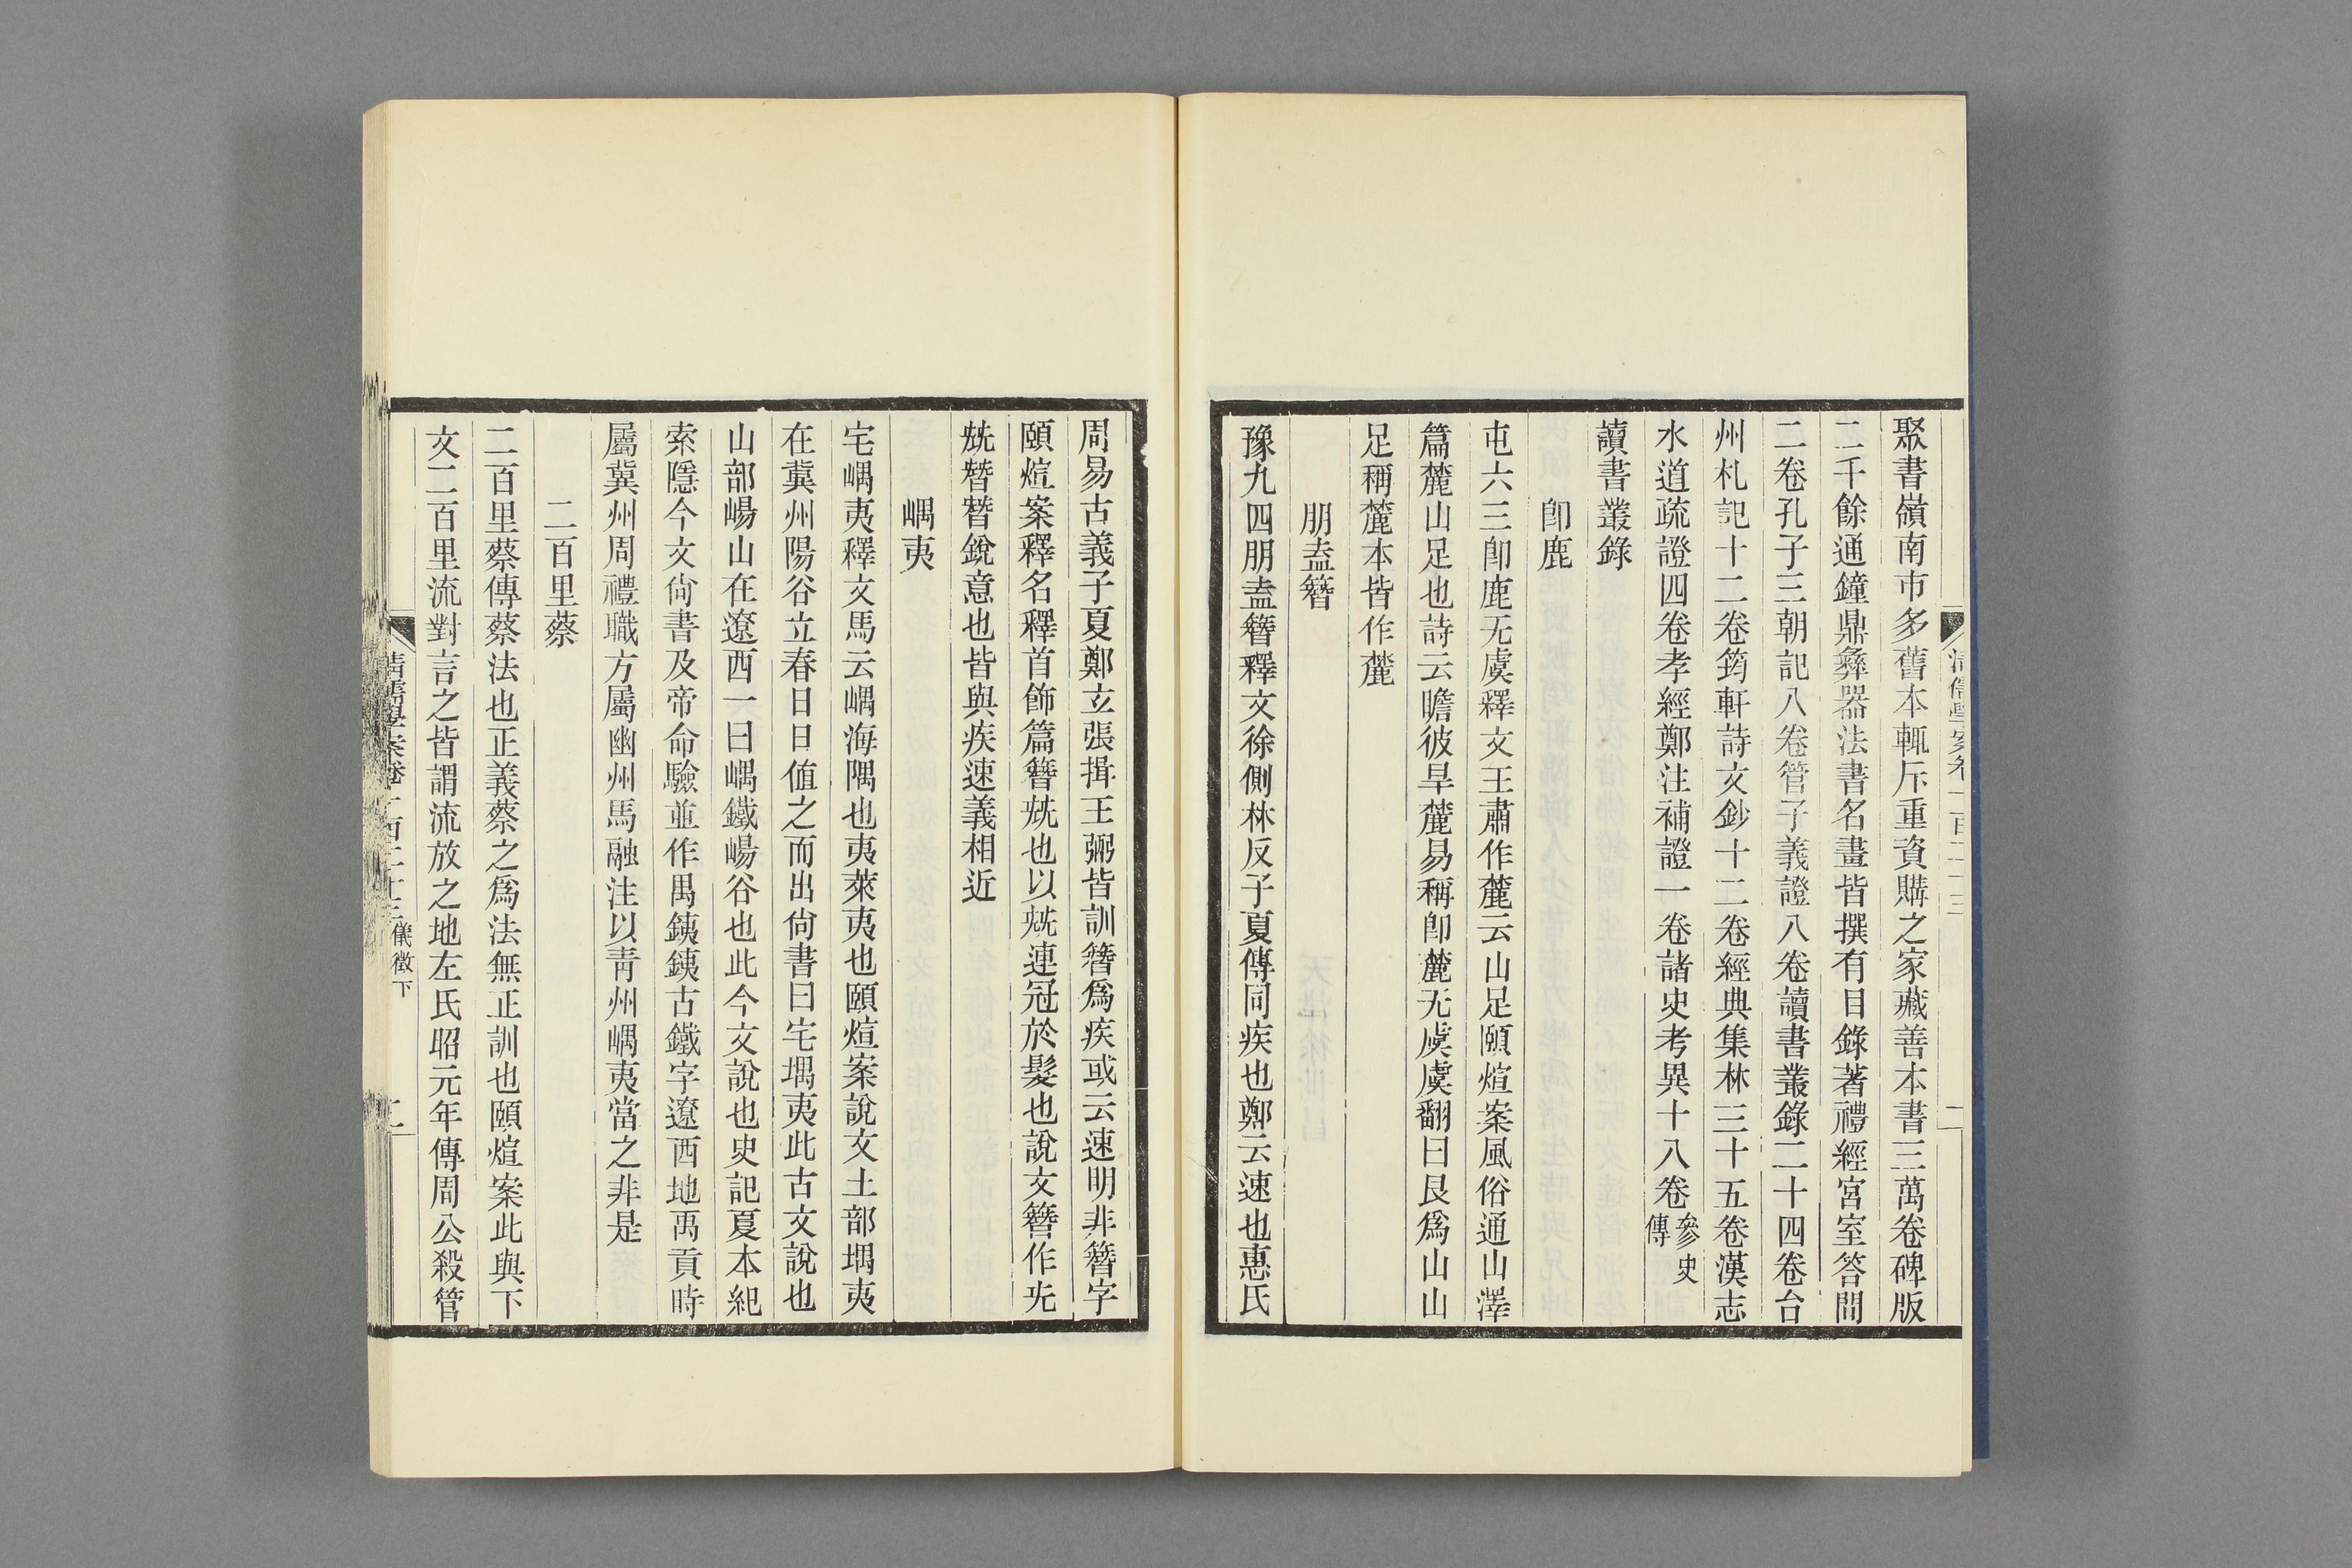 聚書嶺南市多舊本輒斥重資購之家藏善本書三萬卷碑版
二千餘通鐘鼎彝器法書名畫皆撰有目錄著禮經宮室答問
二卷孔子三朝記八卷管子義證八卷讀書叢錄二十四卷台
州札記十二卷筠軒詩文鈔十二卷經典集林三十五卷漢志
水道疏證四卷孝經鄭注補證一卷諸史考異十八卷參史傳
讀書叢錄
卽鹿
屯六三卽鹿无虞釋文王肅作麓云山足頤煊案風俗通山澤
篇麓山足也詩云瞻彼旱麓易稱卽麓无虞虞翻曰艮爲山山
足稱麓本皆作麓
朋盍簪
豫九四朋盍簪釋文徐側林反子夏傳同疾也鄭云速也惠氏
周易古義子夏鄭玄張揖王弼皆訓簪爲疾或云速明非簪字
頤煊案釋名釋首飾篇簪兓也以兓連冠於髮也說文簪作兂
兓朁朁銳意也皆與疾速義相近
嵎夷
宅嵎夷釋文馬云嵎海隅也夷萊夷也頤煊案說文土部堣夷
在冀州陽谷立春日日值之而出尙書曰宅堣夷此古文說也
山部崵山在遼西一曰嵎鐵崵谷也此今文說也史記夏本紀
索隱今文尙書及帝命驗並作禺銕銕古鐵字遼西地禹貢時
屬冀州周禮職方屬幽州馬融注以靑州嵎夷當之非是
二百里蔡
二百里蔡傳蔡法也正義蔡之爲法無正訓也頤煊案此與下
文二百里流對言之皆謂流放之地左氏昭元年傳周公殺管
清儒學案卷一百二十三 儀徵下 二